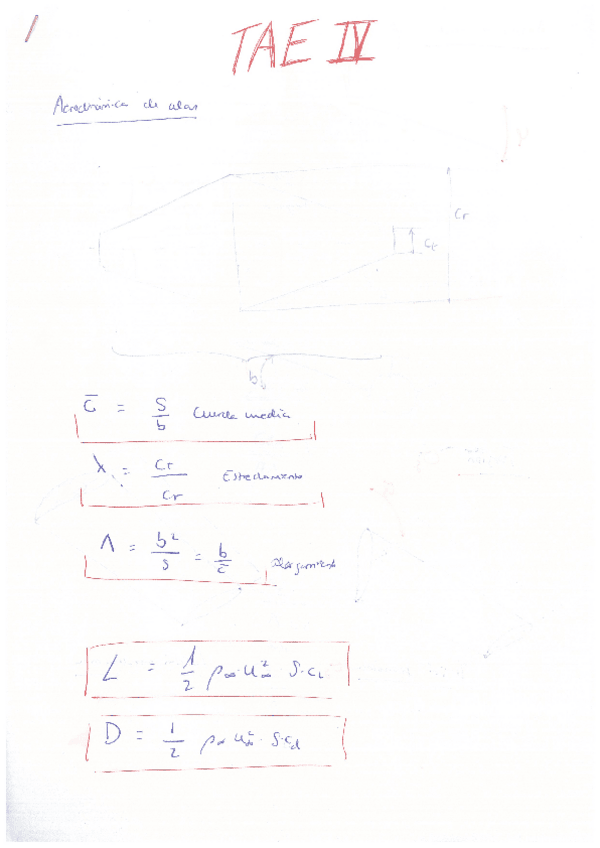 1
TAE IV
Aerodinámica de alas
cr
ct
b
c̄ = S/b Cuerda media
λ = cr/cr Estrechamiento
Λ = b²/S = b/c̄ Alargamiento
L = 1/2 ρ∞ u∞² · S · cL
D = 1/2 ρ∞ u∞² · S · cd